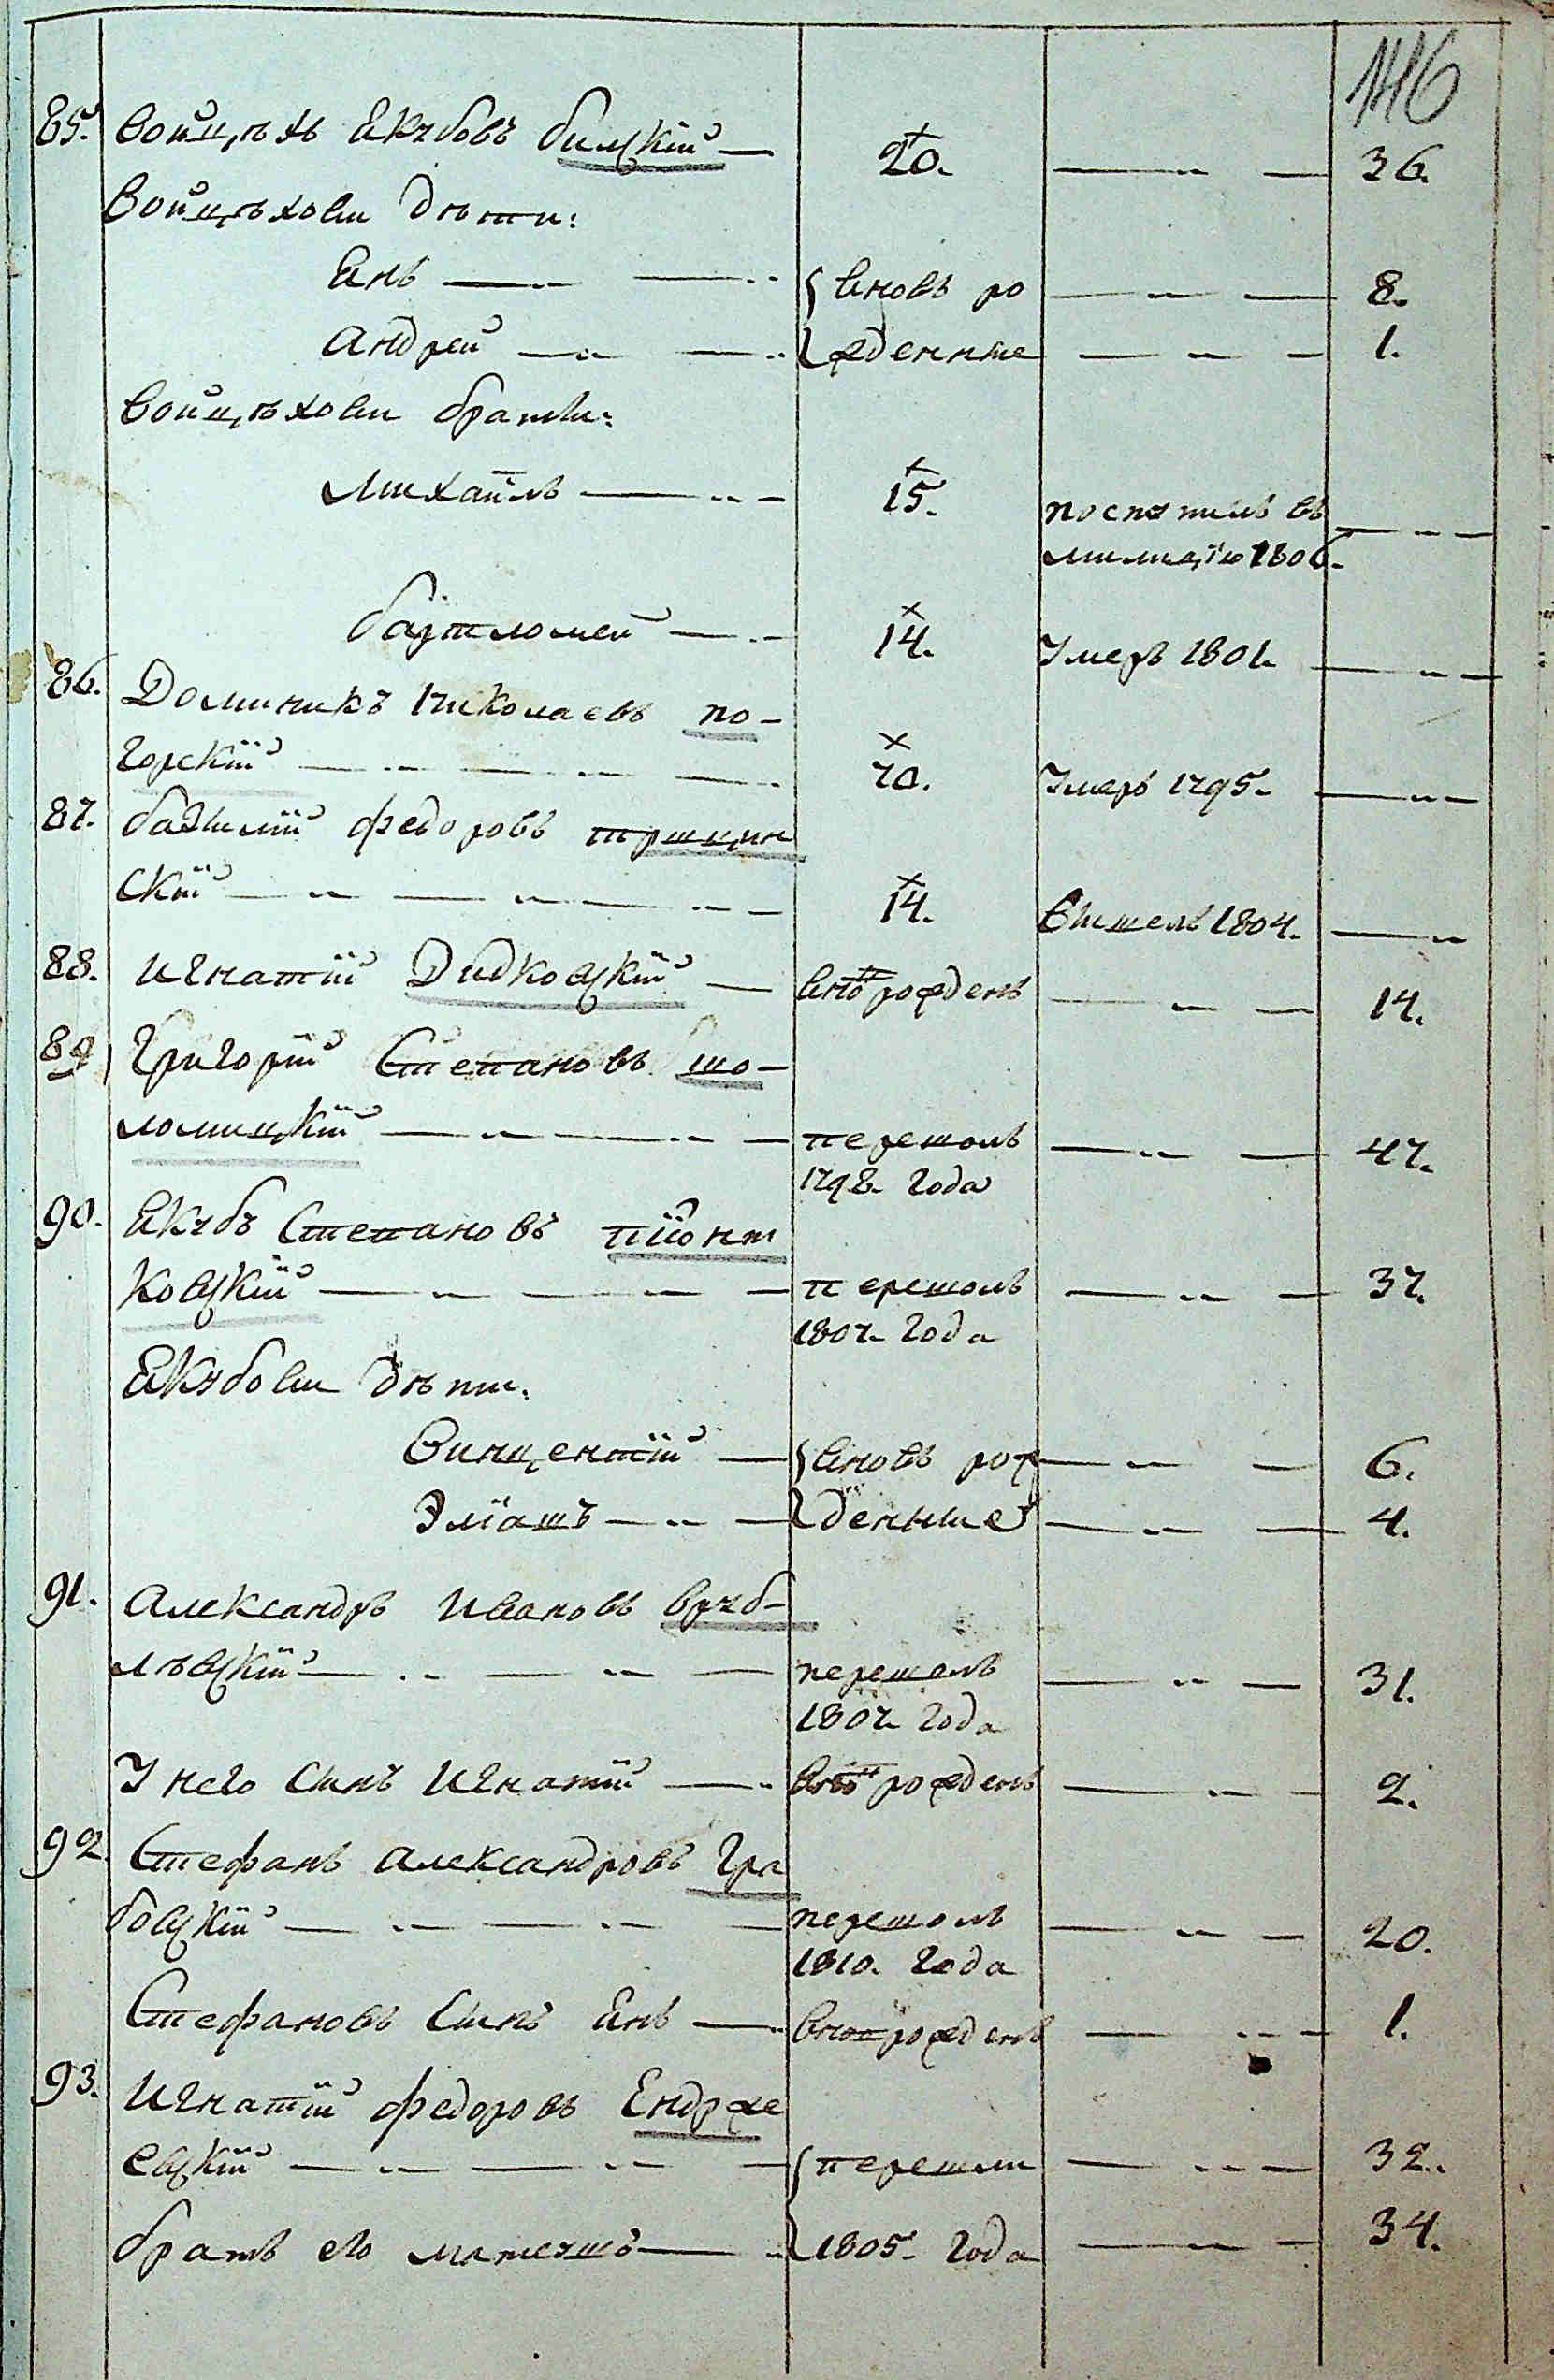 146
85. Войцѣхъ Якубовъ Билскій — 20. — 36.
Войцѣховы дѣти:
Янъ — вновь ро — 8.
Андрей — жденные — 1.
Войцѣховы братьи:
Михаилъ — 15. поступилъ въ —
милицію 1806.
Бартломей — 14. Умеръ 1801. —
86. Доминикъ Николаевъ По-
горскій — 70. Умеръ 1795. —
87. Базилій Федоровъ
скій — 14. Вышелъ 1804. —
88. Игнатій Дидковскій — вно рожденъ — 14.
89 Григорій Степановъ Шо-
ломицкій — перешолъ — 47.
1798. года
90. Якубъ Степановъ Піонт
ковскій — перешолъ — 37.
1807. года
Якубовы дѣти:
Винцентій — вновь рож — 6.
Эліашъ — денные — 4.
91. Александръ Ивановъ Вруб-
лѣвскій — перешелъ — 31.
1807. года
У него сынъ Игнатій — вно рожденъ — 2.
92. Стефанъ Александровъ Гра
бовскій — перешолъ — 20.
1810. года
Стефановъ сынъ Янъ — вно рожденъ — 1.
93. Игнатій Федоровъ Ендрже
евскій — перешли — 32.
братъ его Матеушъ — 1805. года — 34.